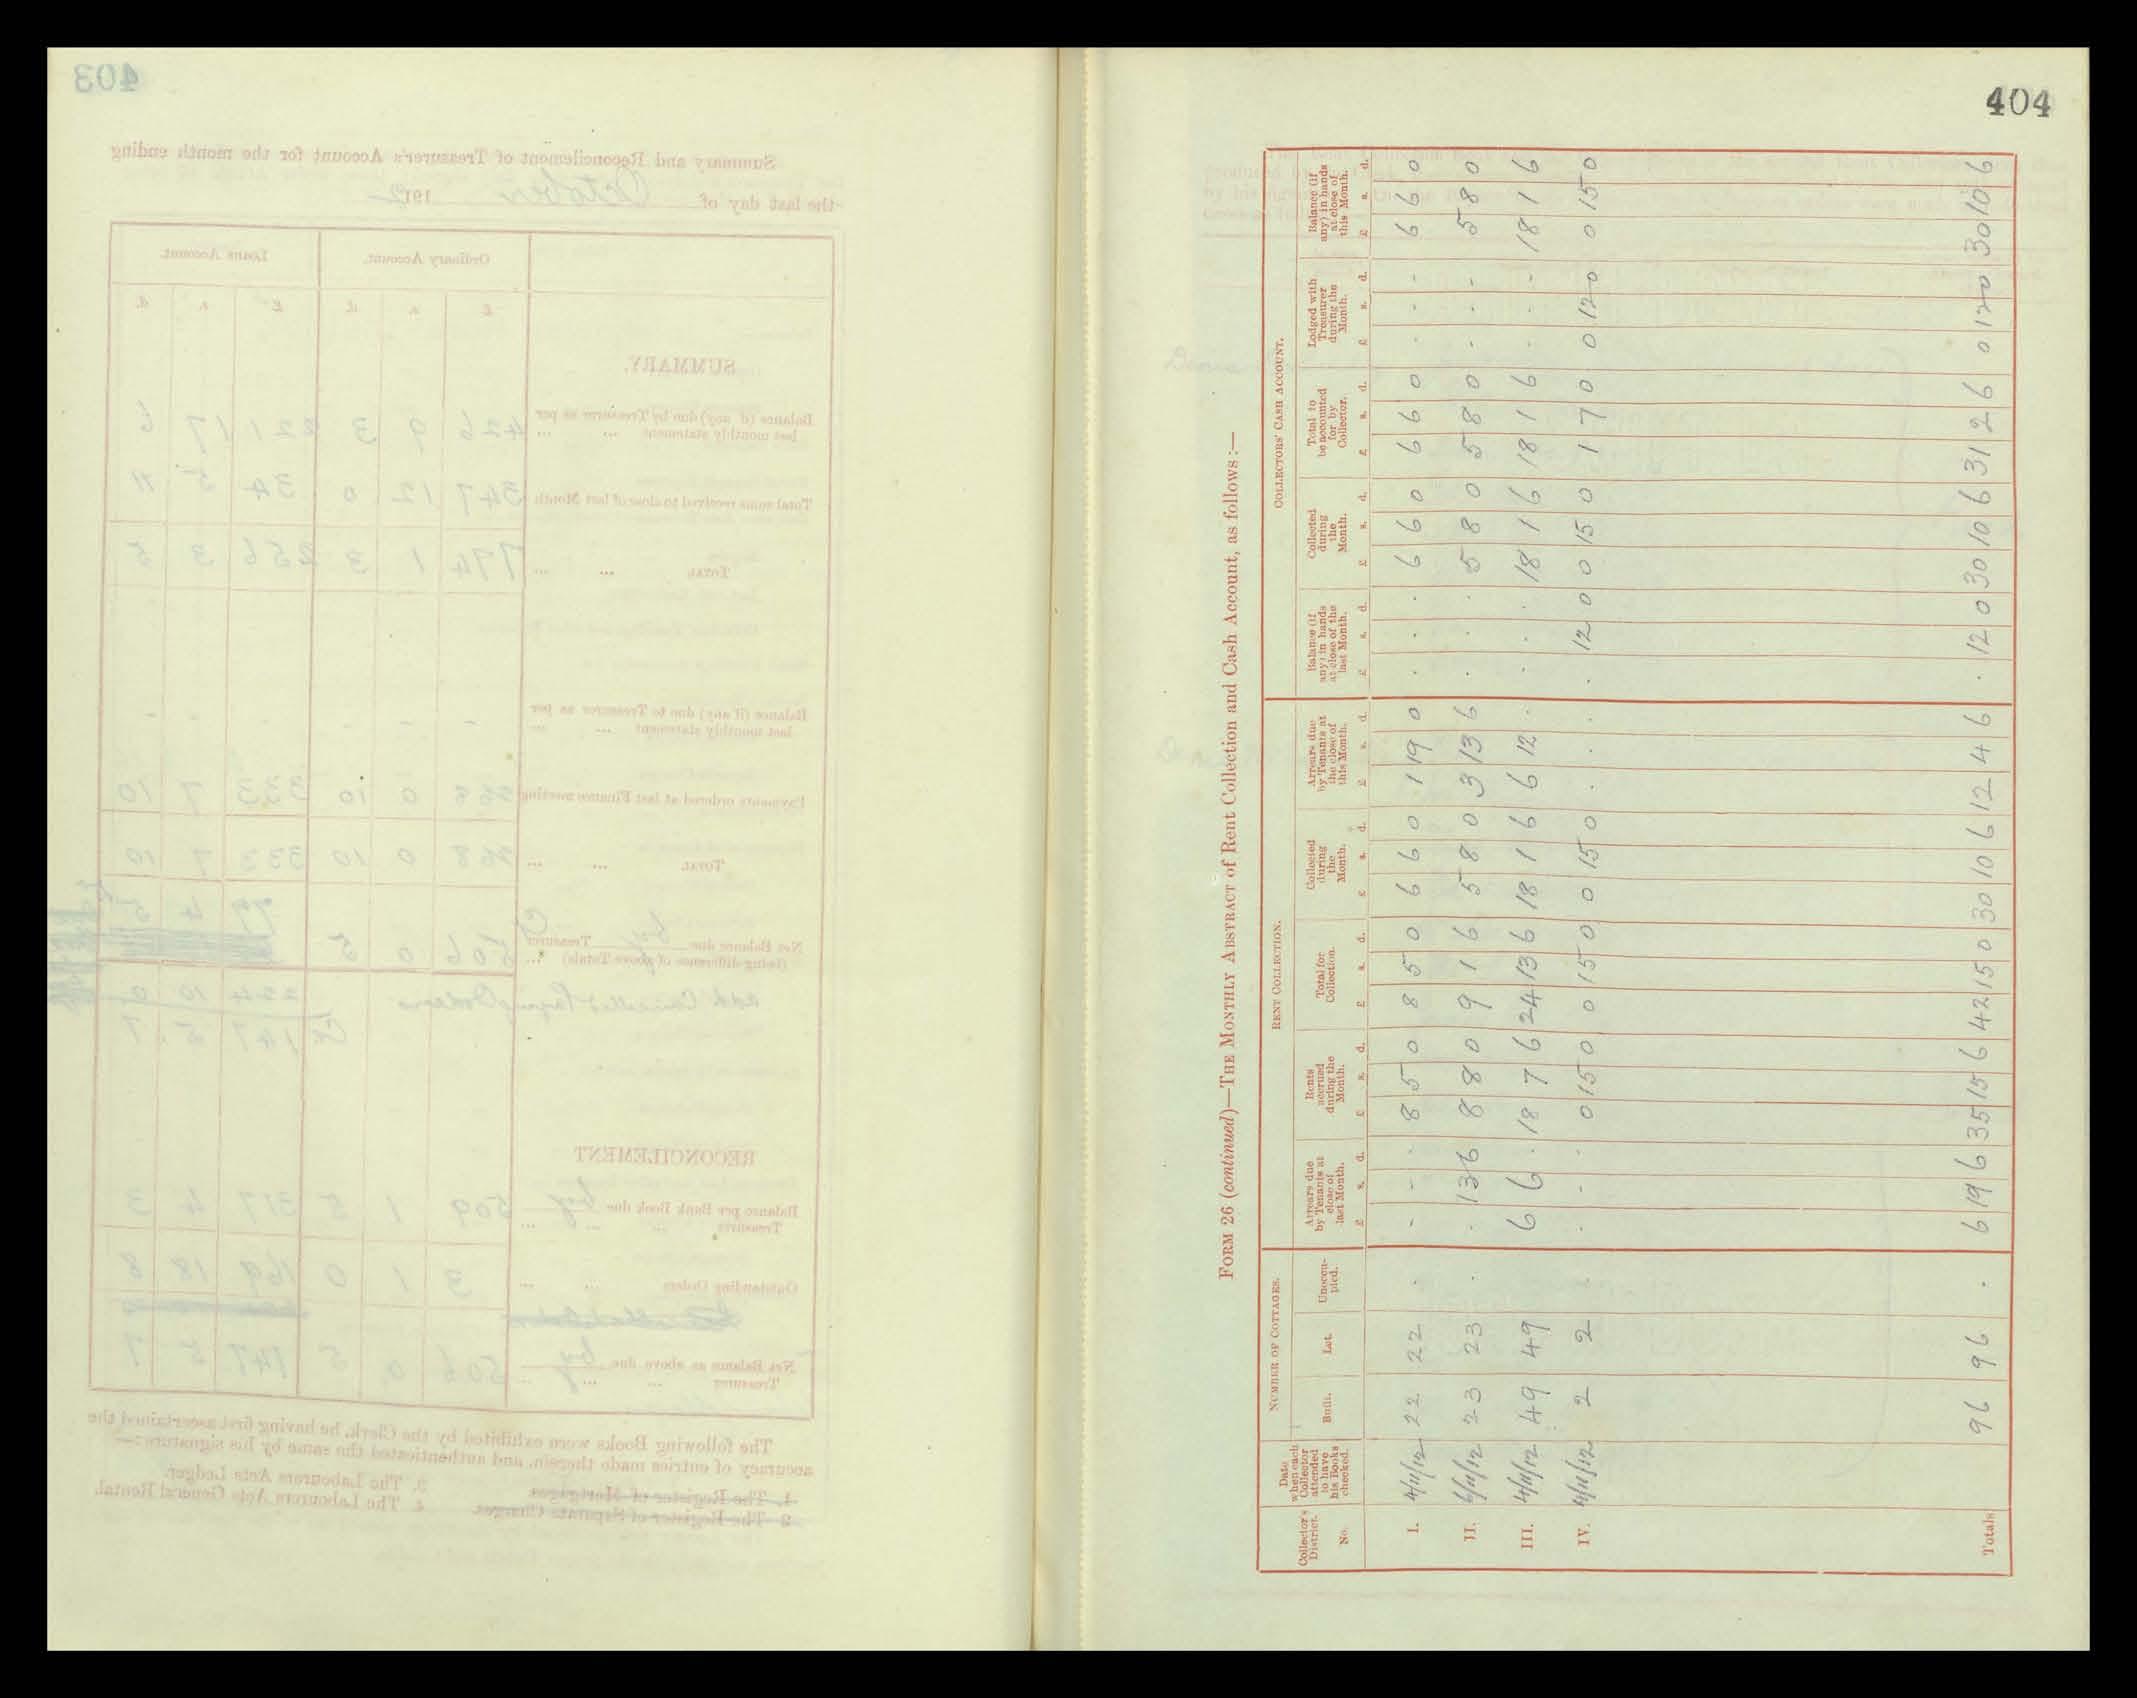 404
FORM 26 (continued)—THE MONTHLY ABSTRACT of Rent Collection and Cash Account, as follows:—
Collector's District. No.
Date when each Collector attended to have his Books checked.
NUMBER OF COTTAGES.
Built. Let. Unoccupied.
RENT COLLECTION.
Arrears due by Tenants at close of last Month. £ s. d.
Rents accrued during the Month. £ s. d.
Total for Collection. £ s. d.
Collected during the Month. £ s. d.
Arrears due by Tenants at the close of this Month. £ s. d.
COLLECTORS' CASH ACCOUNT.
Balance (if any) in hands at close of the last Month. £ s. d.
Collected during the Month. £ s. d.
Total to be accounted for by Collector. £ s. d.
Lodged with Treasurer during the Month. £ s. d.
Balance (if any) in hands at close of this Month. £ s. d.
I. 4/11/12 22 22 . - - . 8 5 0 8 5 0 6 6 0 1 19 0 . . . 6 6 0 6 6 0 . - - 6 6 0
II. 6/11/12 23 23 . . 13 6 8 8 0 9 1 6 5 8 0 3 13 6 . . . 5 8 0 5 8 0 - - - 5 8 0
III. 4/11/12 49 49 6 6 . 18 7 6 24 13 6 18 1 6 6 12 . . . . 18 1 6 18 1 6 . . - 18 1 6
IV. 4/11/12 2 2 . - . 0 15 0 0 15 0 0 15 0 . . . . 12 0 0 15 0 1 7 0 0 12 0 0 15 0
Totals 96 96 . 6 19 6 35 15 6 42 15 0 30 10 6 12 4 6 . 12 0 30 10 6 31 2 6 0 12 0 30 10 6
403
Summary and Reconcilement of Treasurer's Account for the month ending
the last day of October 1912
Ordinary Account. Loans Account.
£ s. d. £ s. d.
SUMMARY.
Balance (if any) due by Treasurer as per last monthly statement ... ... 426 9 3 221 17 6
Total sums received to close of last Month 347 12 0 34 5 11
TOTAL ... ... 774 1 3 256 3 5
Balance (if any) due to Treasurer as per last monthly statement ... ... - - - - - -
Payments ordered at last Finance meeting 268 0 10 333 7 10
TOTAL ... ... 268 0 10 333 7 10
Net Balance due by Treasurer (being difference of above Totals) ... 506 0 5 77 4 5
add Cancelled Paying Orders 224 10 0
147 5 7
RECONCILEMENT
Balance per Bank Book due by Treasurer ... ... ... 509 1 5 317 4 3
Outstanding Orders ... ... 3 1 0 169 18 8
Net Balance as above due by Treasurer ... ... ... 506 0 5 147 5 7
The following Books were exhibited by the Clerk, he having first ascertained the
accuracy of entries made therein, and authenticated the same by his signature:—
1. The Register of Mortgages.
2. The Register of Separate Charges.
3. The Labourers Acts Ledger.
4. The Labourers Acts General Rental.